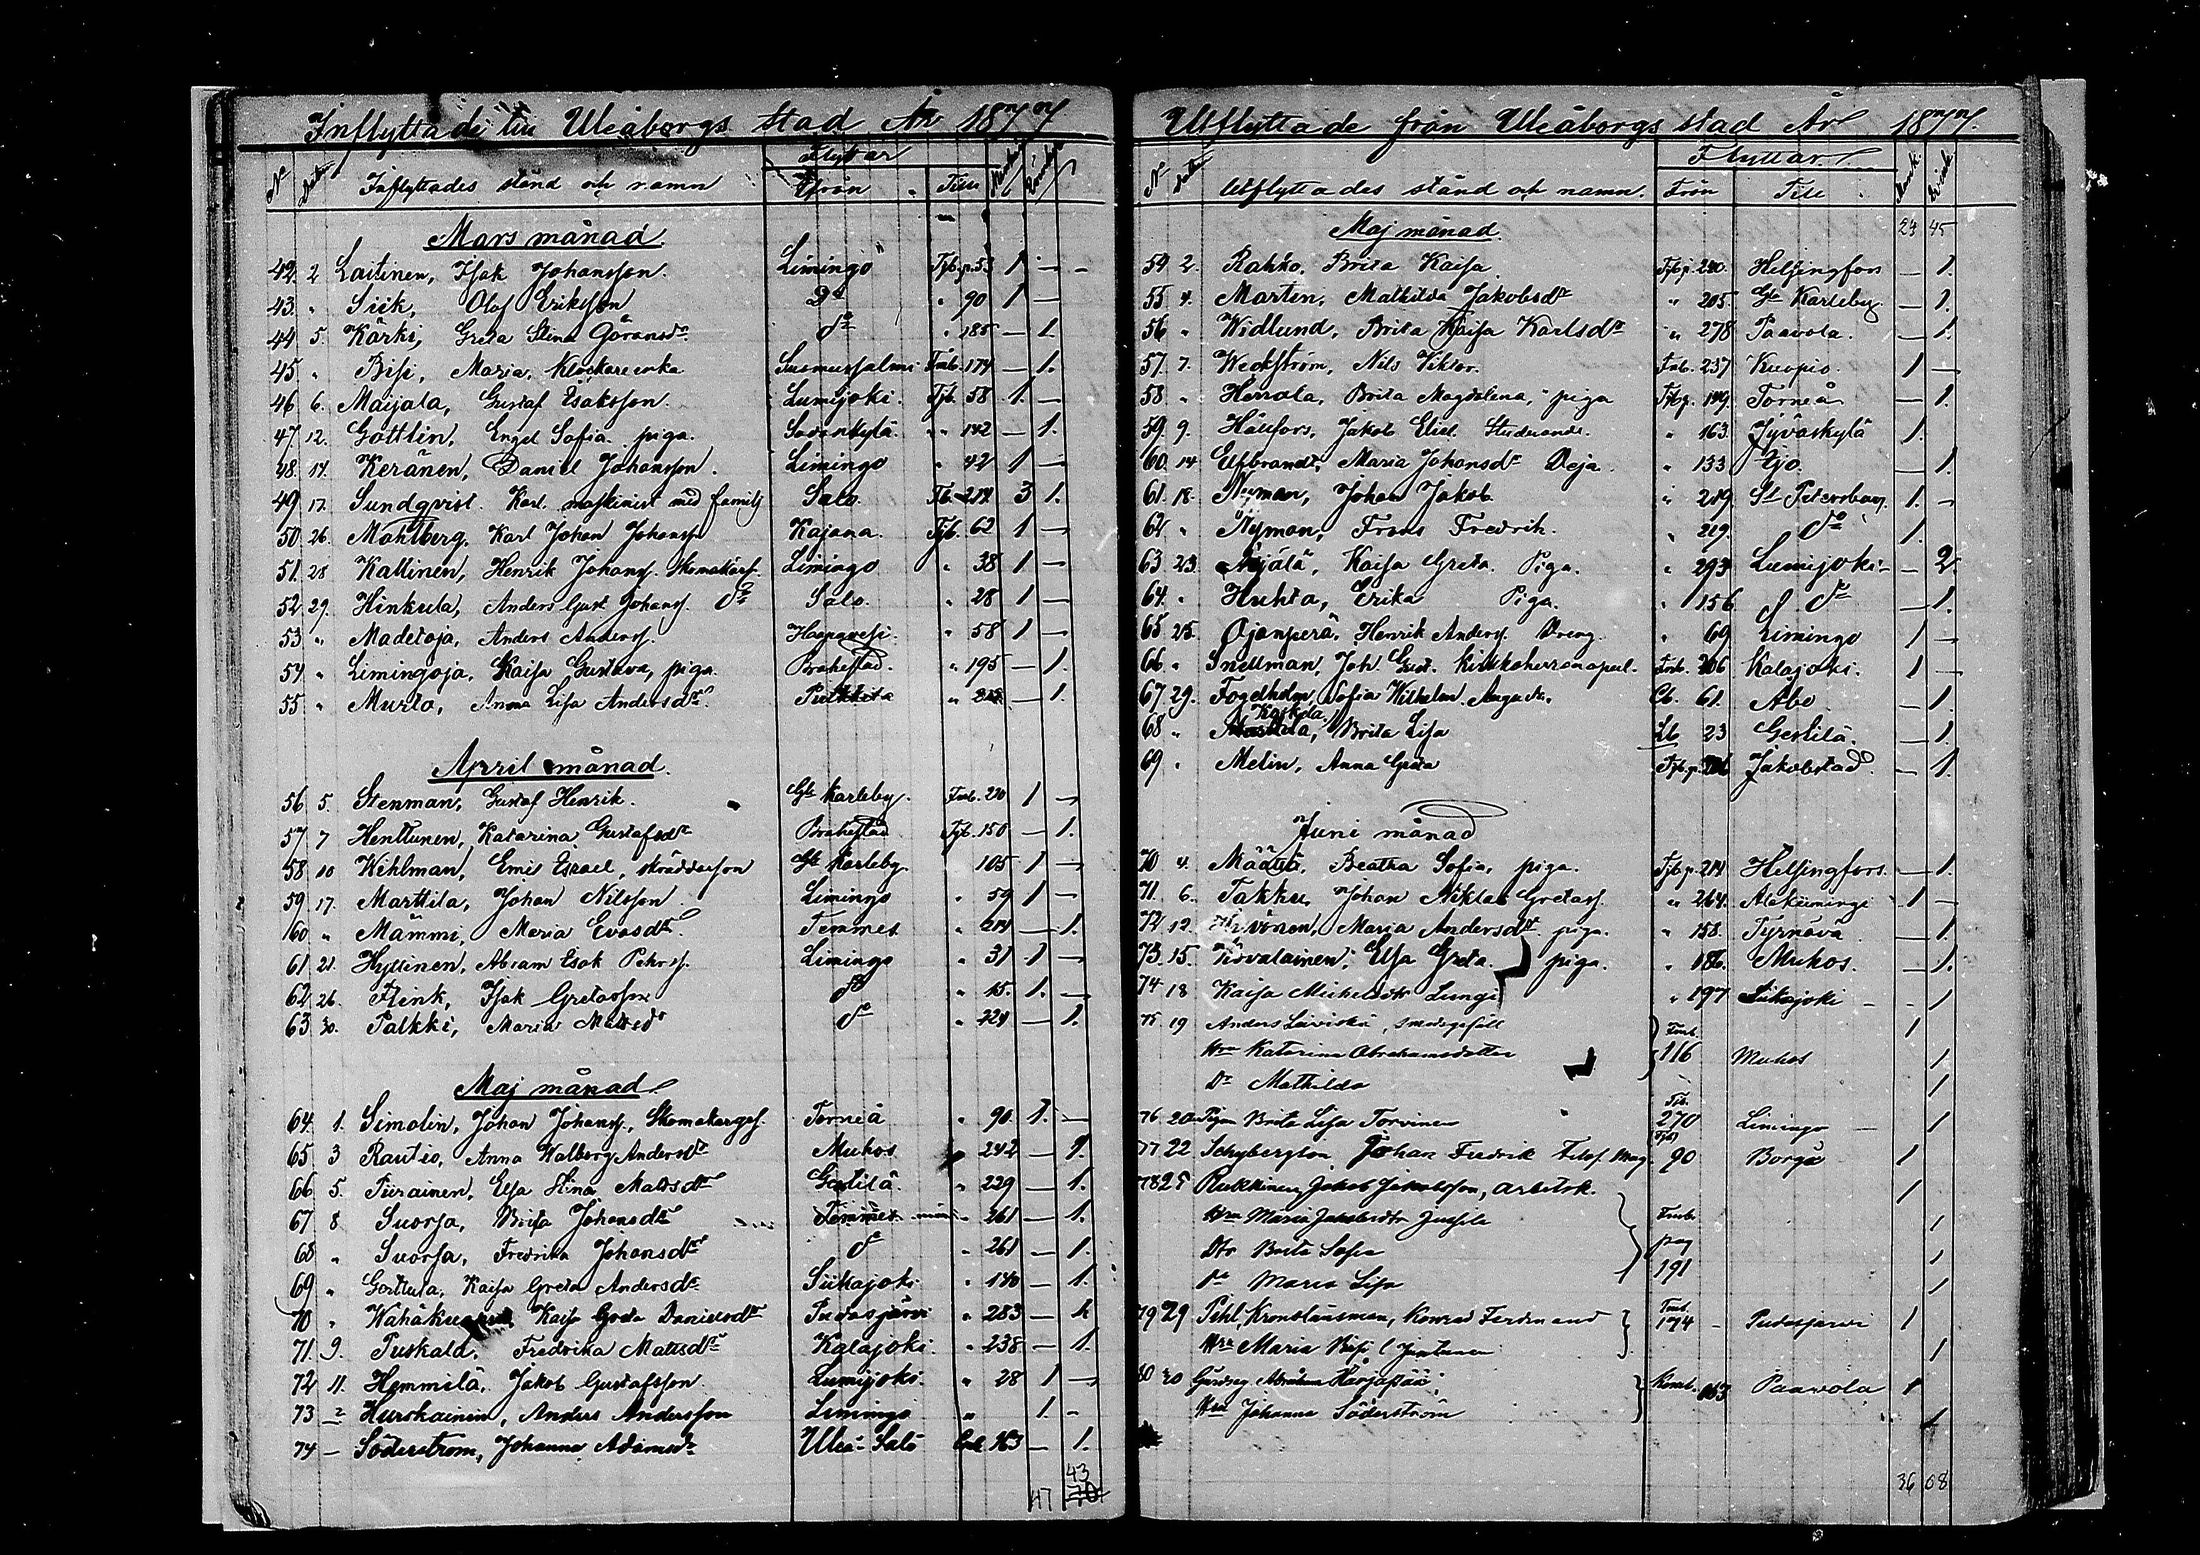 Inflyttade till Uleåborgs stad År 1877
N° Datum Inflyttades stånd och namn Flyttar
Ifrån Till Mankön Qvinkön
Mars månad
42. 2 Laitinen, Isak Johansson. Limingo Tjb. p. 53 1 — -
43. " Siik, Olof Eriksson D° " 90 1 —
44 5. Kärki, Greta Stina Göransdr. d° " 185 — 1.
45 " Bisi, Maria, Klockareenka Suomussalmi Fmb. 174 — 1.
46 6. Maijala, Gustaf Esaksson. Lumijoki. Tjb. 58 1. —
47 12. Gottlin, Engel Sofia piga. Sodankylä. " 142 — 1.
48. 14. Keränen, Daniel Johansson. Limingo " 42 1 —
49 17. Sundqvist. Karl. maskinist med familj Salo. 3 1.
50 26. Mahlberg, Karl Johan Johanss Kajana. Tjb. 62 1 —
51. 28 Kallinen, Henrik Johanss. Skomakars. Limingo " 38 1 —
52. 29. Hinkula, Anders Gust Johanss. d° Salo. " 28 1 —
53 " Madetoja, Anders Anderss. Haapavesi. " 58 1 —
54 " Limingoja, Kaisa Gustava, piga. Brahestad. " 195 — 1.
55 " Murto, Anna Lisa Andersdr. Pulkkila " — 1.
April månad.
56 5. Stenman, Gustaf Henrik. Gla Karleby. Fmb. 220 1 —
57. 7 Henttunen, Katarina Gustafsdr Brahestad Tjb. 150 — 1.
58 10 Wihlman, Emil Israel, skräddarson Gla Karleby 105 1 —
59 17. Marttila, Johan Nilsson Limingo " 59 1 —
60 " Mämmi, Maria Evasdr. Temmes " 214 — 1.
61 21. Hyttinen, Abram Esak Pehrss. Limingo " 31 1 —
62. 26. Flink, Isak Gretasson d° " 15. 1. —
63 30. Palkki, Maria Mattsdr d° " 221 — 1.
Maj månad
64. 1. Simolin, Johan Johanss., Skomakarges. Torneå " 90. 1. —
65. 3 Rautio, Anna Walborg Andersdr Muhos 242 — 1.
66 5. Piirainen, Elsa Stina Mattsdr Gestilä. " 229 — 1.
67 8 Suorsa, Brita Johansdr Temmes " 261 — 1.
68 " Suorsa, Fredrika Johansdr d° " 261 — 1.
69 " Gorttula, Kaisa Greta Andersdr Siikajoki " 170 — 1.
70 " Kaisa Greta Danielsdr Pudasjärvi " 283 —
71. 9. Puskala, Fredrika Mattsdr Kalajoki. " 238 — 1.
72 11. Hemmilä, Jakob Gustafsson Lumijoki. " 28 1 —
73 Hurskainen, Anders Andersson Limingo " 1. -
74 — Söderström, Johanna Adamsdr Uleå-Salo 163 — 1.
43
47 70
Utflyttade från Uleåborgs stad År 1877.
N° Datum Utflyttades stånd och namn. Flyttar
Från Till Mank. Qvink.
Maj månad. 24 45
54 2. Rahko, Brita Kaisa Tjb p. 280. Helsingfors — 1.
55 4. Marten, Mathilda Jakobsdr " 205 Gla Karleby — 1.
56 " Widlund, Brita Kaisa Karlsdr " 278 Paavola. — 1.
57. 7. Weckström, Nils Viktor. Fmb. 237 Kuopio. 1 —
58 " Herrala, Brita Magdalena, piga Tjb p. 149. Torneå — 1.
59. 9. Hällfors, Jakob Eliel. Studerande. " 163. Jyväskylä 1.
60. 14 Elfbrandt, Maria Johansdr Deja " 133 Ijo. — 1.
61. 18. Nyman, Johan Jakob " 219 St Petersburg 1. —
62 " Nyman, Frans Fredrik. " 219. d° 1.
63 23. Äijälä, Kaisa Greta. Piga. " 293 Lumijoki — 2
64. " Huhta, Erika Piga. " 156 d° — 1.
65 25. Ojanperä, Henrik Anderss. Dreng. " 69 Limingo 1 —
66 " Snellman, Joh. Gust. kyrkoherrensapul. Fmb. 206 Kalajoki. 1 —
67. 29. Fogelholm, Sofia Wilhelm. Augusta. Cb. 61. Åbo — 1.
68 " Kaskela, Brita Lisa Lb 23 Gestilä. — 1.
69 " Melin, Anna Greta Tjb p. Jakobstad — 1.
Juni månad
70 4. Määttä, Beatha Sofia, piga. Tjb p. 214 Helsingfors. — 1.
71. 6. Takku, Johan Niklas Gretass. " 264. Alakiimingi 1 —
72 12. Maria Andersdr piga. " 158. Tyrnävä — 1.
73. 15. Elsa Greta. piga. " 186. Muhos. — 1.
74 18 Kaisa Mickelsdtr Lungi " 197 Siikajoki - - 1
75. 19 Anders Leiviskä, smedegesäll Fmb. 1
Hru Katarina Abrahamsdotter 116 Muhos 1
Dr Mathilda 1
76 20 Pigan Brita Lisa Torvinen 270 Limingo — 1
77 22 Schybergson Johan Fredrik Filos. Mag. 90 Borgå 1
78 25 Rukkinen Jakob Jakobsson, arbetsk. 1
Hru Maria Jakobsdtr Fmb. 1
Dtr Brita Sofia pag 1
d° Maria Lisa 191 1
79 29 Pihl, Kronolänsman, Konrad Ferdinand Fmb. 174 - Pudasjärvi 1
Hru Maria Bisi 1
80 30 Abraham Harjapää 163 Paavola 1
Hru Johanna Söderström 1
36 08